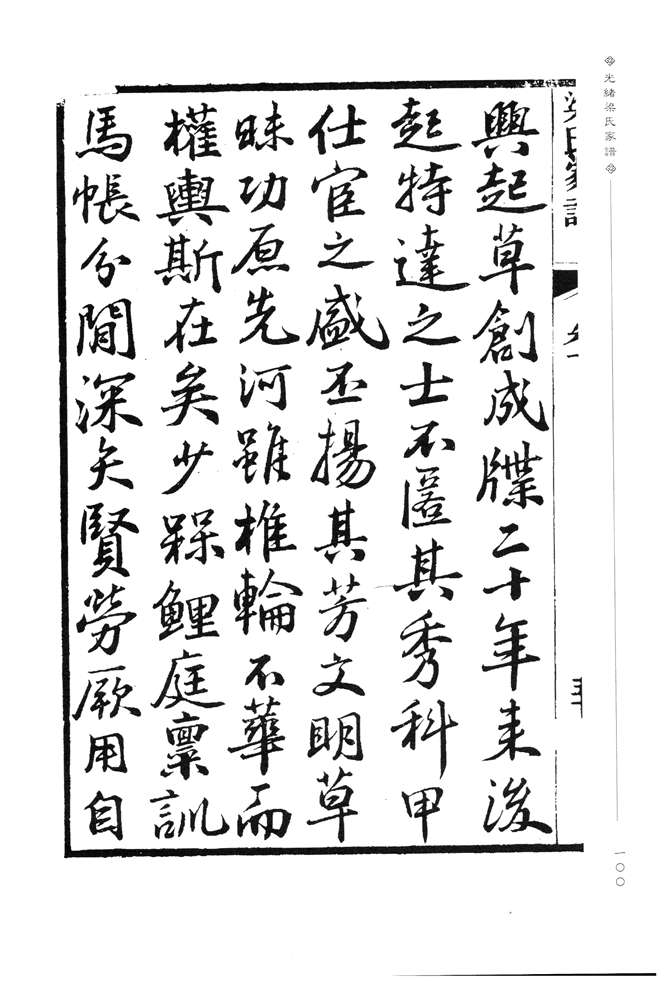 光緒梁氏家譜
梁氏家譜
興起草創成牒二十年来後
起特達之士不匿其秀科甲
仕宦之盛丕揚其芳文明草
昧功原先河雖椎輪不華而
權輿斯在矣少
鯉庭禀訓
馬帳分閒深矣賢勞厥用自
一〇〇